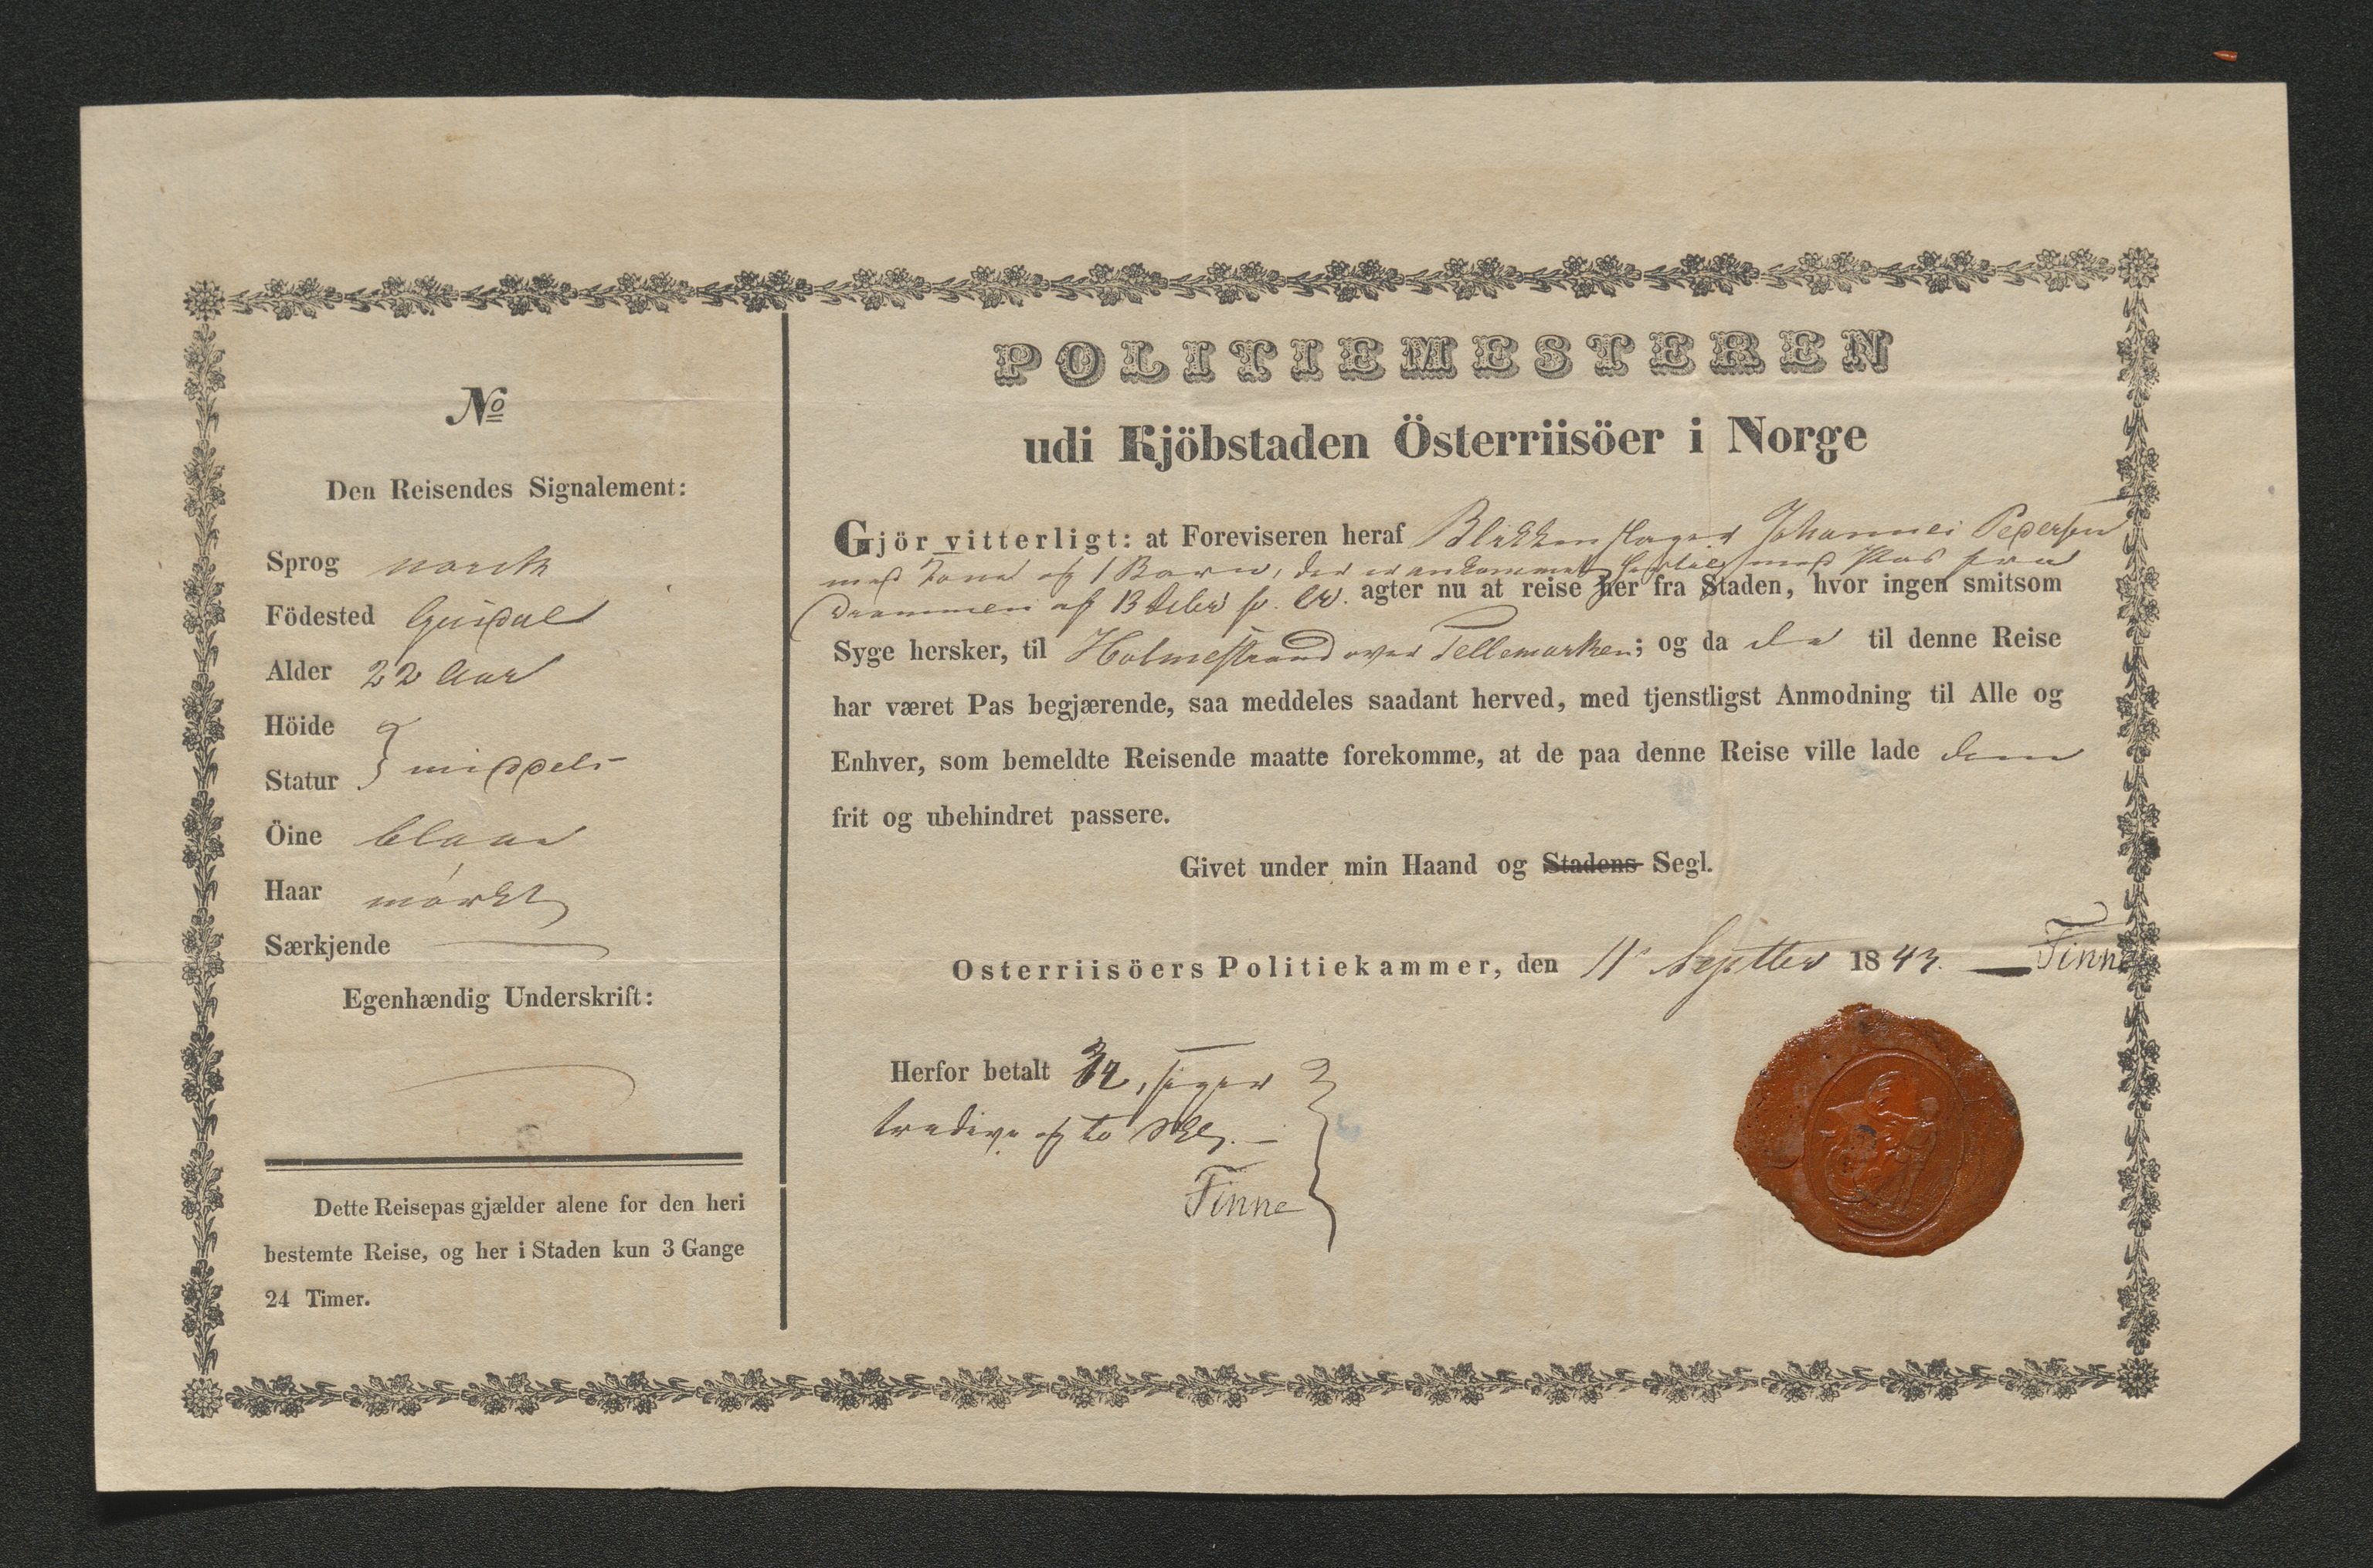 No
Den Reisendes Signalement:
Sprog norsk
Födested Guisdal
Alder 22 Aar
Höide
Statur } middels
Öine blaae
Haar mörkt
Særkjende
Egenhændig Underskrift:
Dette Reisepas gjælder alene for den heri
bestemte Reise, og her i Staden kun 3 Gange
24 Timer.
POLITIEMESTEREN
udi Kjöbstaden Österriisöer i Norge
Gjör vitterligt: at Foreviseren heraf Blikkenslager Johannes Pedersen
med Kone og 1 Barn, der er ankommet hertil med Pas fra
Drammen af 13 Debr f. A. agter nu at reise her fra Staden, hvor ingen smitsom
Syge hersker, til Holmestrand over Tellemarken; og da de til denne Reise
har været Pas begjærende, saa meddeles saadant herved, med tjenstligst Anmodning til Alle og
Enhver, som bemeldte Reisende maatte forekomme, at de paa denne Reise ville lade dem
frit og ubehindret passere.
Givet under min Haand og Stadens Segl.
Osterriisöers Politiekammer, den 11 Septbr 1843. Finne
Herfor betalt 32, siger
tredive og to Sk.
Finne